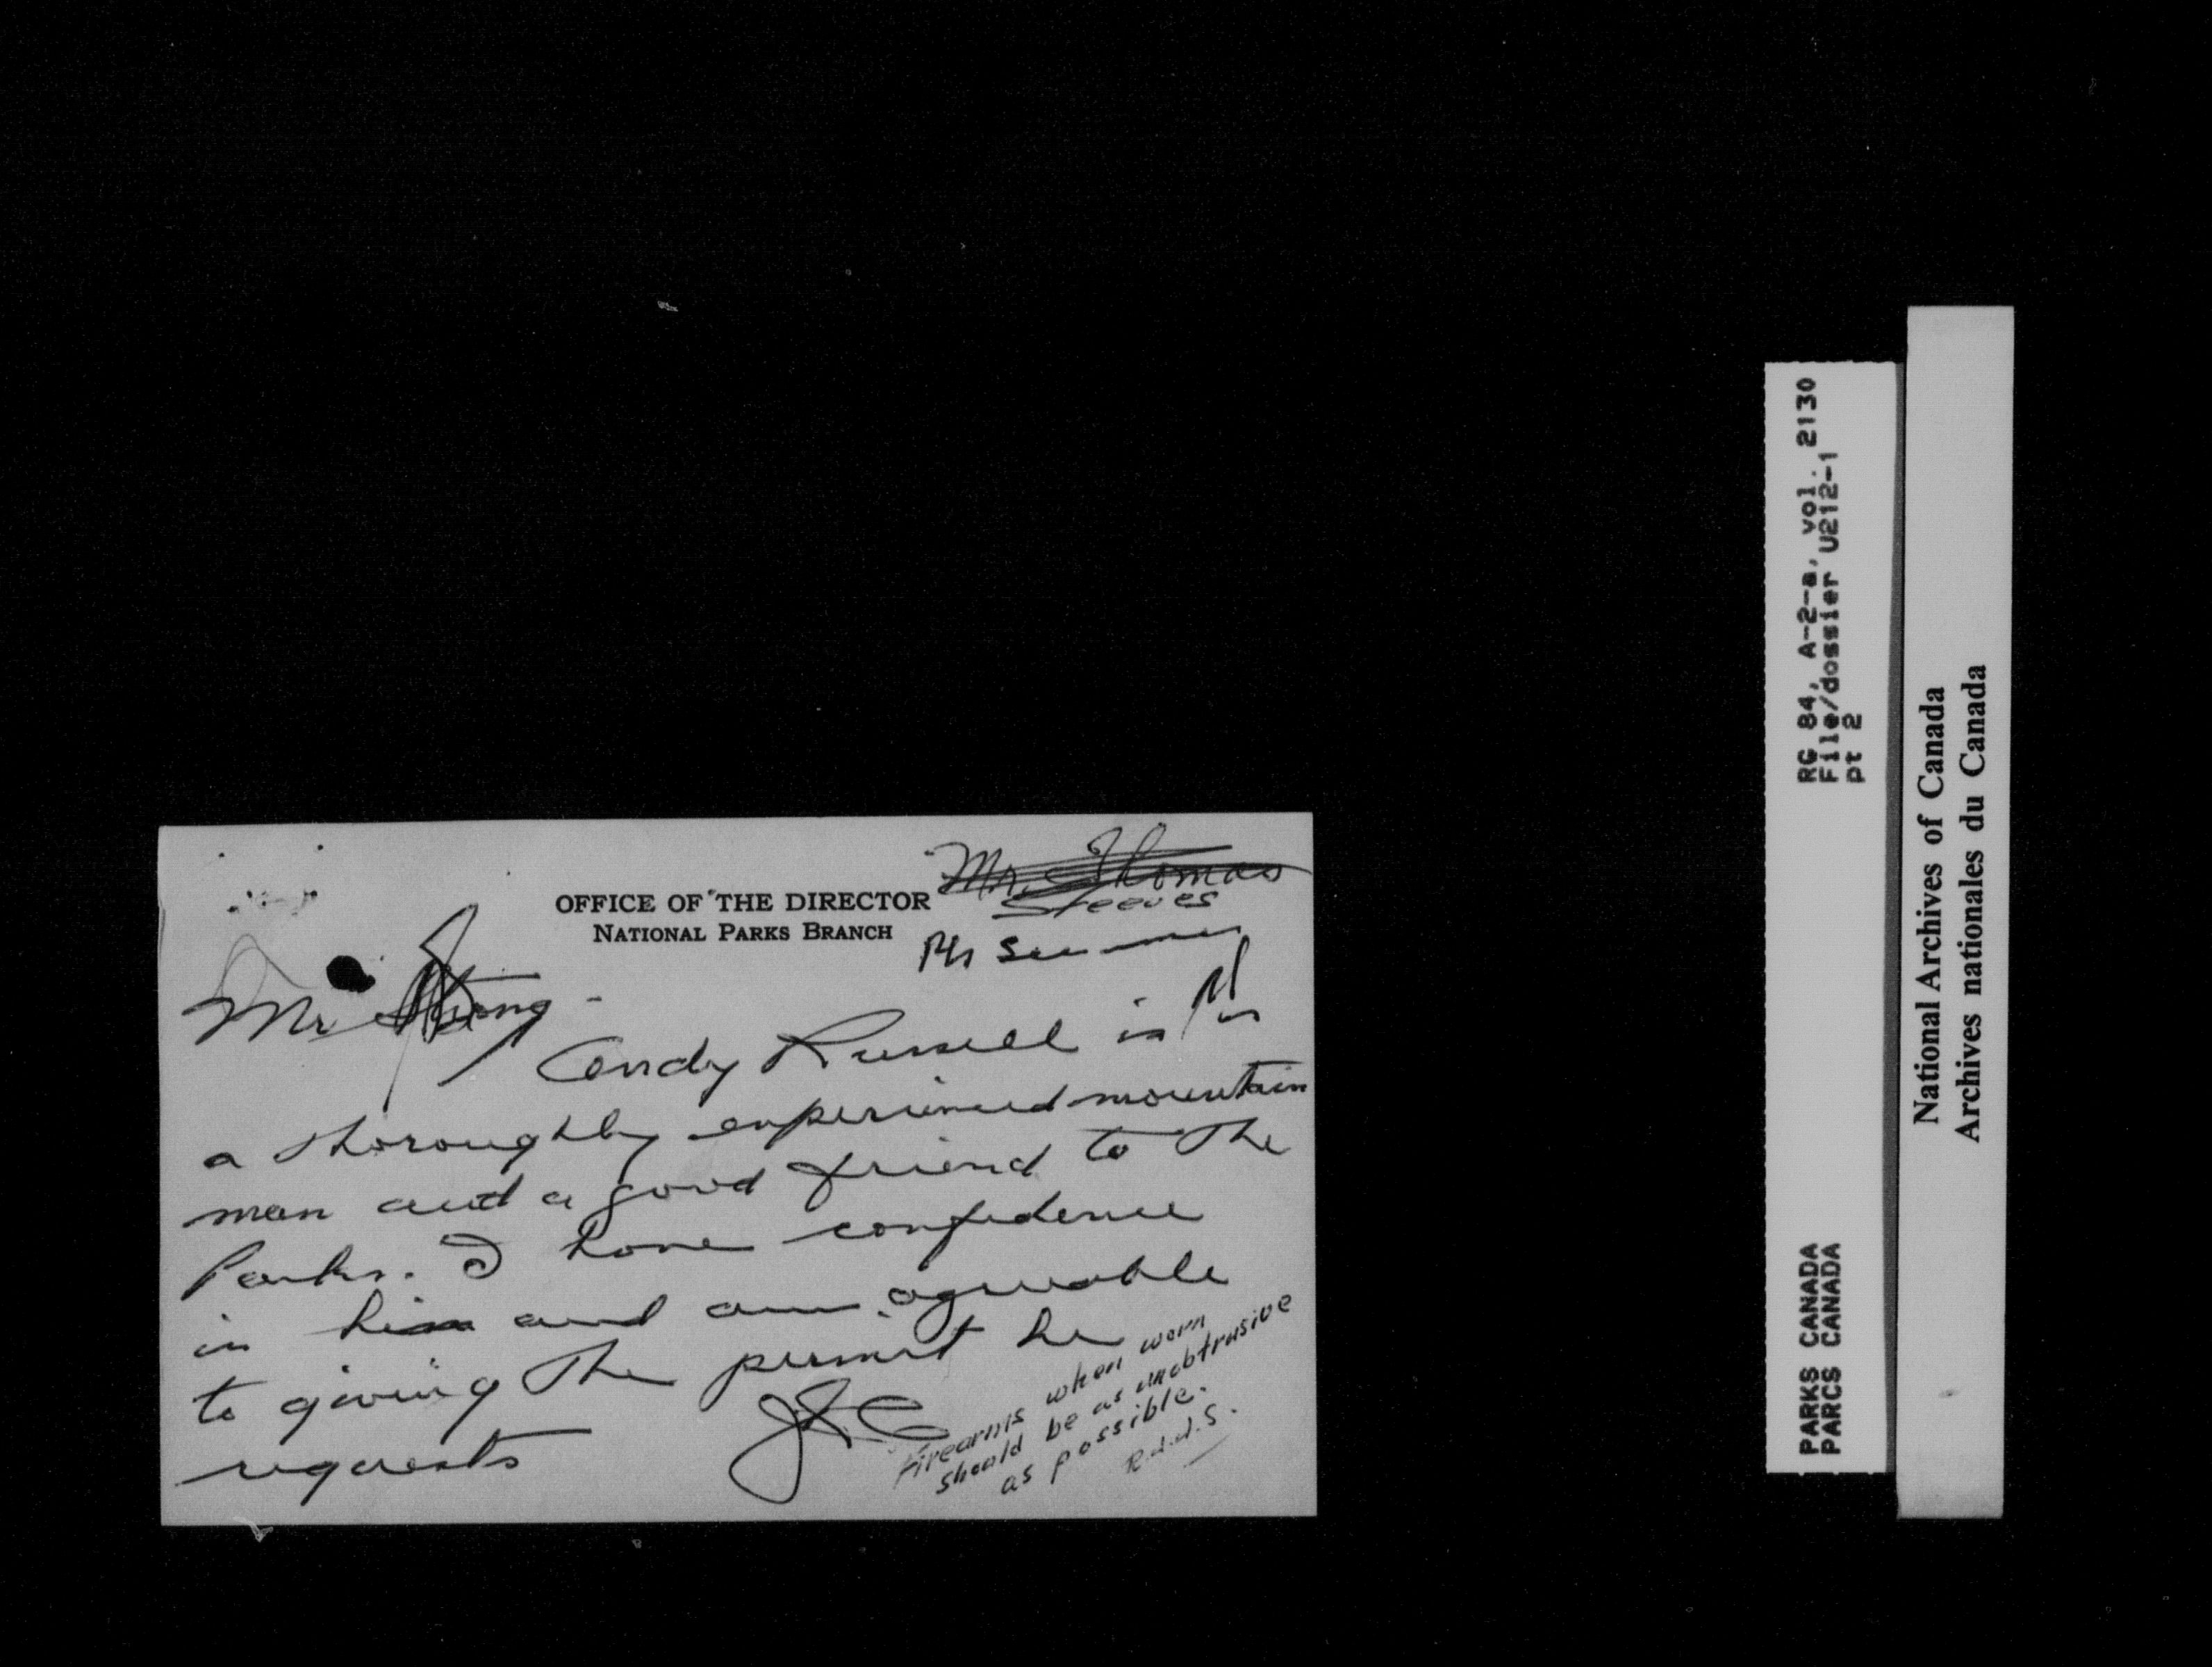 Mr. Thomas
Steeves
OFFICE OF THE DIRECTOR
NATIONAL PARKS BRANCH
Mr
Mr Strong -
Andy Russell is
a thoroughly experienced mountain
man and a good friend to the
Parks. I have confidence
in him and am agreeable
to giving the permit he
requests
Firearms when worn
should be as unobtrusive
as possible.
RG 84, A-2-a, vol. 2130
File/dossier U212-1
pt 2
PARKS CANADA
PARCS CANADA
National Archives of Canada
Archives nationales du Canada